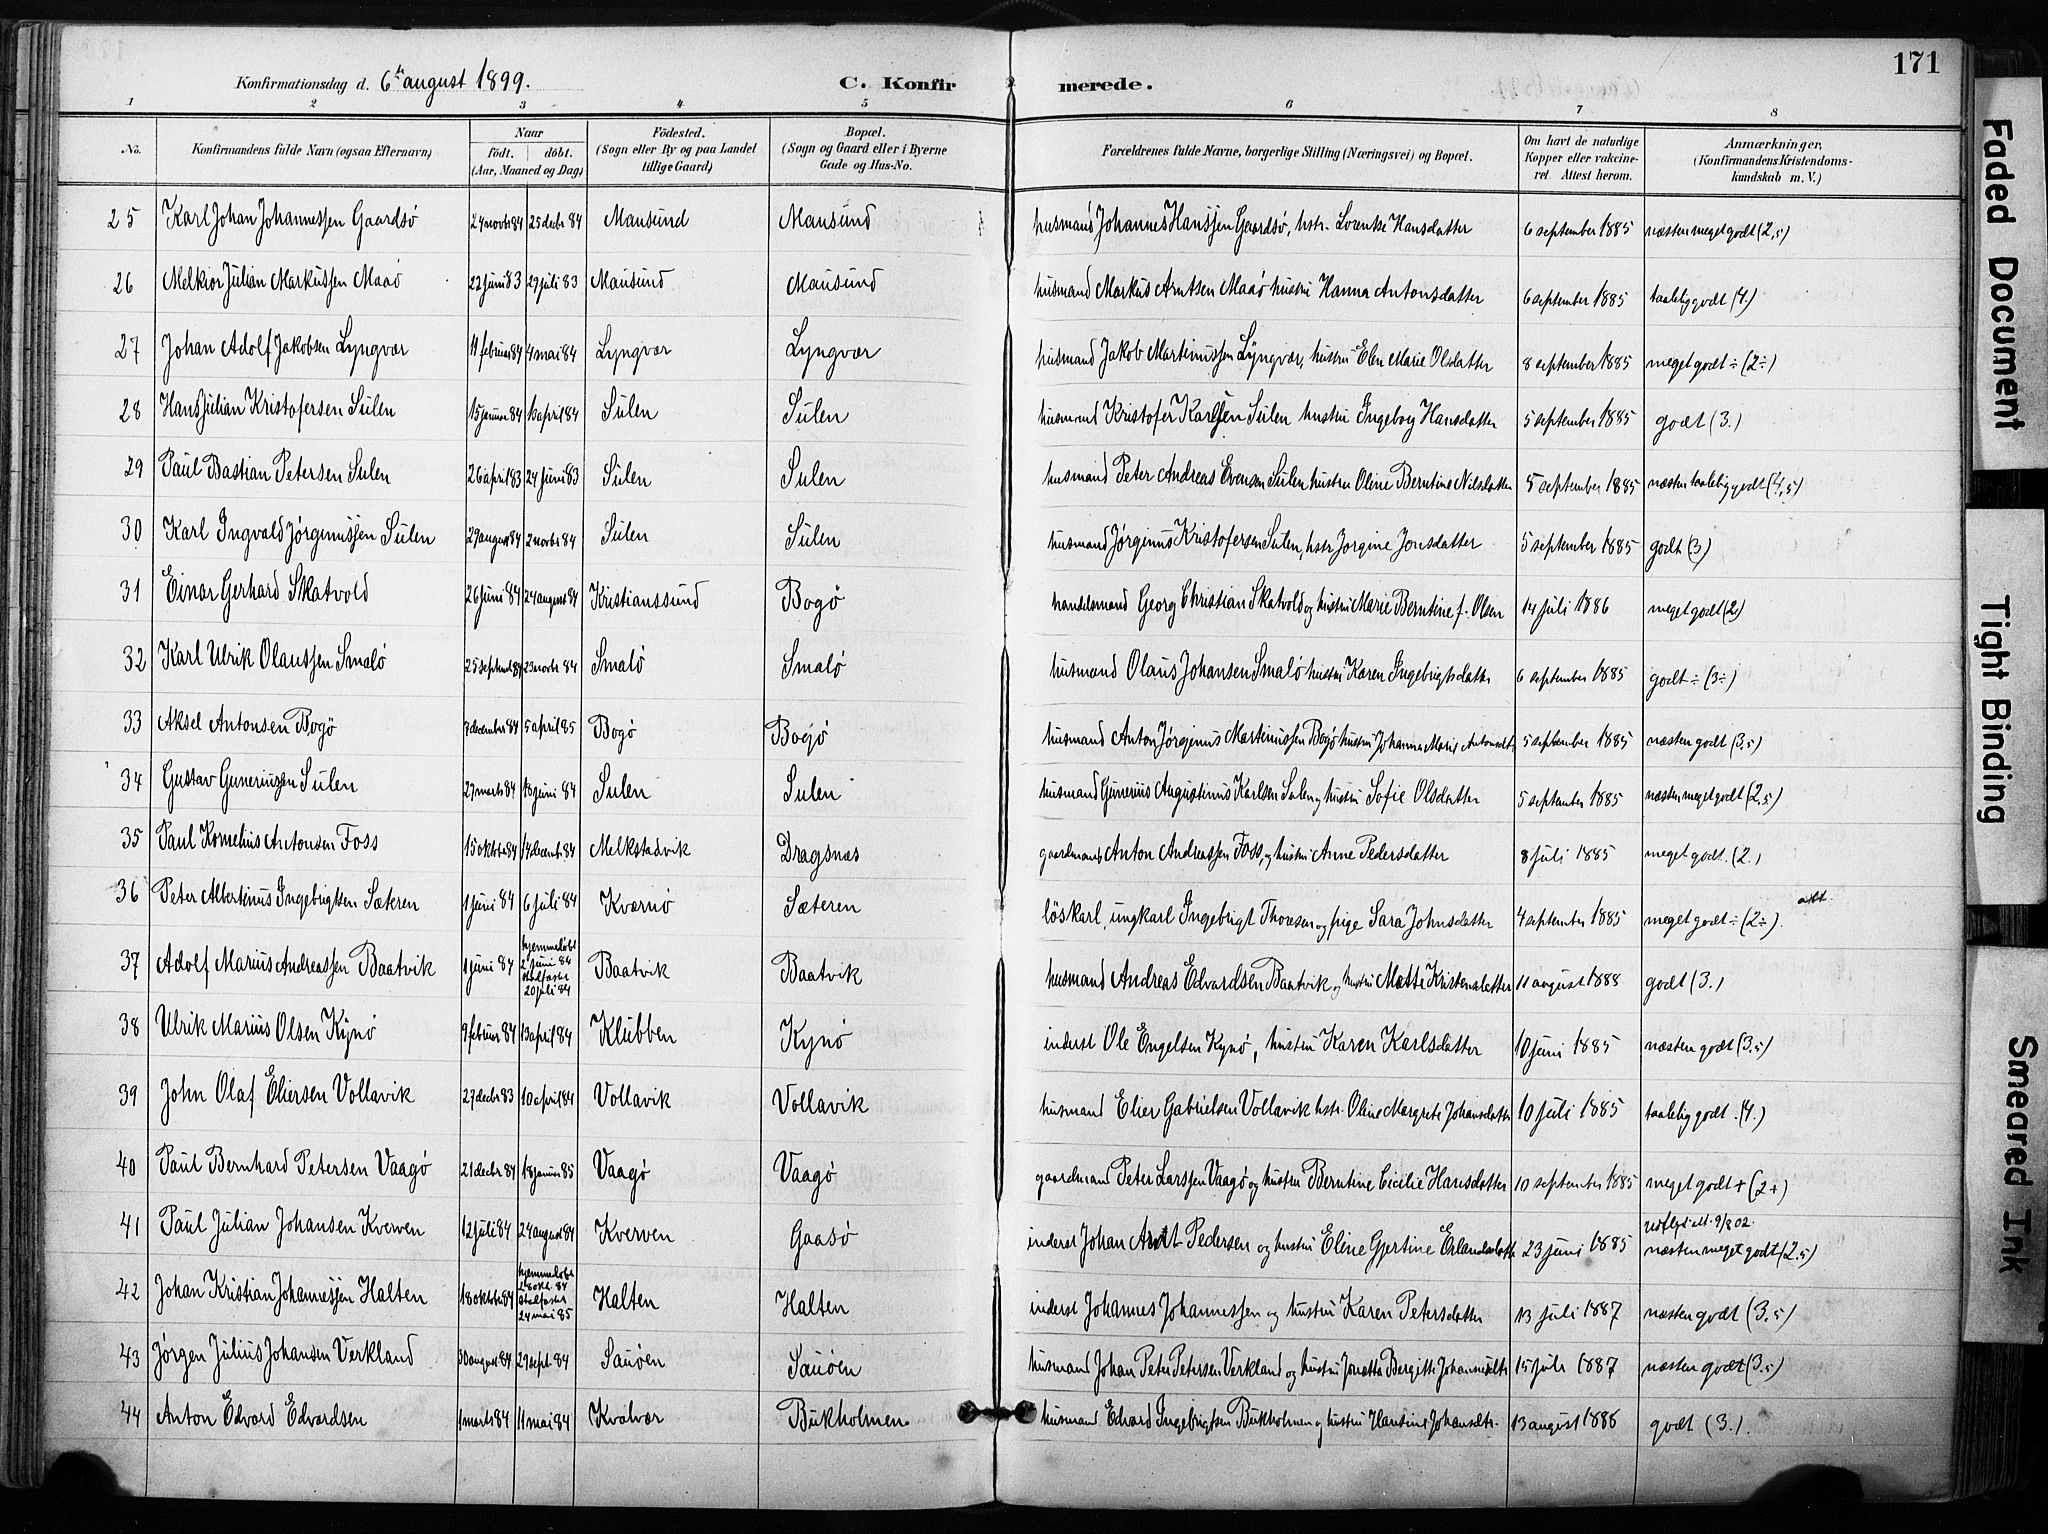 171
Konfirmationsdag d. 6te august 1899. C. Konfirmerede.
1 2 3 4 5 6 7 8
No. Konfirmandens fulde Navn (ogsaa Efternavn) Naar födt. döbt. (Aar, Maaned og Dag) Födested. (Sogn eller By og paa Landet tillige Gaard) Bopæl. (Sogn og Gaard eller i Byerne Gade og Hus-No. Forældrenes fulde Navne, borgerlige Stilling (Næringsvei) og Bopæl. Om havt de naturlige Kopper eller vakcineret. Attest herom. Anmærkninger, (Konfirmandens Kristendomskundskab m. V.)
25 Karl Johan Johannessen Gaardsø 24 novbr 84 25 decbr 84 Mausund Mausund husmand Johannes Hanssen Gaardsø, hstr. Lorentse Hansdatter 6 september 1885 næsten meget godt (2,5)
26 Melkior Julian Markussen Maaø 22 juni 83 29 juli 83 Mausund Mausund husmand Markus Arntsen Maaø hustru Hanna Antonsdatter 6 september 1885 taalelig godt (4.)
27 Johan Adolf Jakobsen Lyngvær 11 februar 84 4 mai 84 Lyngvær Lyngvær husmand Jakob Martinussen Lyngvær, hustru Elen Marie Olsdatter 8 september 1885 meget godt ÷ (2÷)
28 Hans Julian Kristofersen Sulen 15 januar 84 16 april 84 Sulen Sulen husmand Kristofer Karlsen Sulen hustru Ingeborg Hansdatter 5 september 1885 godt (3.)
29 Paul Bastian Petersen Sulen 26 april 83 24 juni 83 Sulen Sulen husmand Peter Andreas Evensen Sulen hustru Oline Berntine Nilsdatter 5 september 1885 næsten taalelig godt (4,5)
30 Karl Ingvald Jørginussen Sulen 29 august 84 2 novbr 84 Sulen Sulen husmand Jørginus Kristofersen Sulen, hstr Jorgine Jonsdatter 5 september 1885 godt (3)
31 Einar Gerhard Skatvold 26 juni 84 24 august 84 Kristianssund Bogø handelsmand Georg Christian Skatvold og hustru Marie Berntine f. Olsen 14 juli 1886 meget godt (2)
32 Karl Ulrik Olaussen Smalø 25 septemb 84 23 novbr 84 Smalø Smalø husmand Olaus Johansen Smalø hustru Karen Ingebrigtsdatter 6 september 1885 godt ÷ (3÷)
33 Aksel Antonsen Bogø 7 december 84 5 april 85 Bogø Bogø husmand Anton Jørginus Martinussen Bogø hustru Johanna Marie Antonsdtr 5 september 1885 næsten godt (3,5)
34 Gustav Guneriussen Sulen 27 marts 84 18 juni 84 Sulen Sulen husmand Gunerius Augustinus Karlsen Sulen og hustru Sofie Olsdatter 5 september 1885 næsten meget godt (2,5)
35 Paul Kornelius Antonsen Foss 15 oktbr 84 14 decemb. 84 Melkstadvik Dragsnæs gaardmand Anton Andreassen Foss, og hustru Anne Pedersdatter 8 juli 1885 meget godt. (2.)
36 Peter Albertinus Ingebrigtsen Sæteren 1 juni 84 6 juli 84 Kværnø Sæteren löskarl, ungkarl Ingebrigt Thoresen og pige Sara Johnsdatter 4 september 1885 meget godt ÷ (2÷). att.
37 Adolf Marius Andreassen Baatvik 1 juni 84 hjemmedøbt 2 juni 84 stadfæstet 20 juli 84 Baatvik Baatvik husmand Andreas Edvardsen Baatvik og hustru Mætte Kristensdatter 11 august 1888 godt (3.)
38 Ulrik Marius Olsen Kynø 9 februar 84 13 april 84 Klubben Kynø inderst Ole Engelsen Kynø, hustru Karen Karlsdatter 10 juni 1885 næsten godt (3,5)
39 John Olaf Eliersen Vollavik 27 decbr 83 10 april 84 Vollavik Vollavik husmand Elier Gabrielsen Vollavik hstr. Oline Margrete Johansdatter 10 juli 1885 taalelig godt. (4.)
40 Paul Bernhard Petersen Vaagø 21 decbr 84 18 januar 85 Vaagø Vaagø gaardmand Peter Larssen Vaagø og hustru Berntine Cicilie Hansdatter 10 september 1885 meget godt + (2+)
41 Paul Julian Johansen Kverven 12 juli 84 24 august 84 Kverven Gaasø inderst Johan Arnt Pedersen og hustru Eline Gjertine Erlandsdattr 23 juni 1885 udflyt. att. 9/8 02. næsten meget godt (2,5)
42 Johan Kristian Johannessen Halten 18 oktober 84 hjemmedøbt 28 okt. 84 stadfæstet 24 mai 85 Halten Halten inderst Johannes Johannessen og hustru Karen Petersdatter 13 juli 1887 næsten godt (3,5)
43 Jørgen Julius Johansen Verkland 30 august 84 29 sept. 84 Sauøen Sauøen husmand Johan Peter Petersen Verkland og hustru Jonetta Bergitte Johannesdtr 15 juli 1887 næsten godt (3,5)
44 Anton Edvard Edvardsen 1 marts 84 11 mai 84 Kvalvær Bukholmen husmand Edvard Ingebrigtsen Bukholmen og hustru Hansine Johansdtr. 13 august 1886 godt (3.)
Faded Document
Tight Binding
Smeared Ink